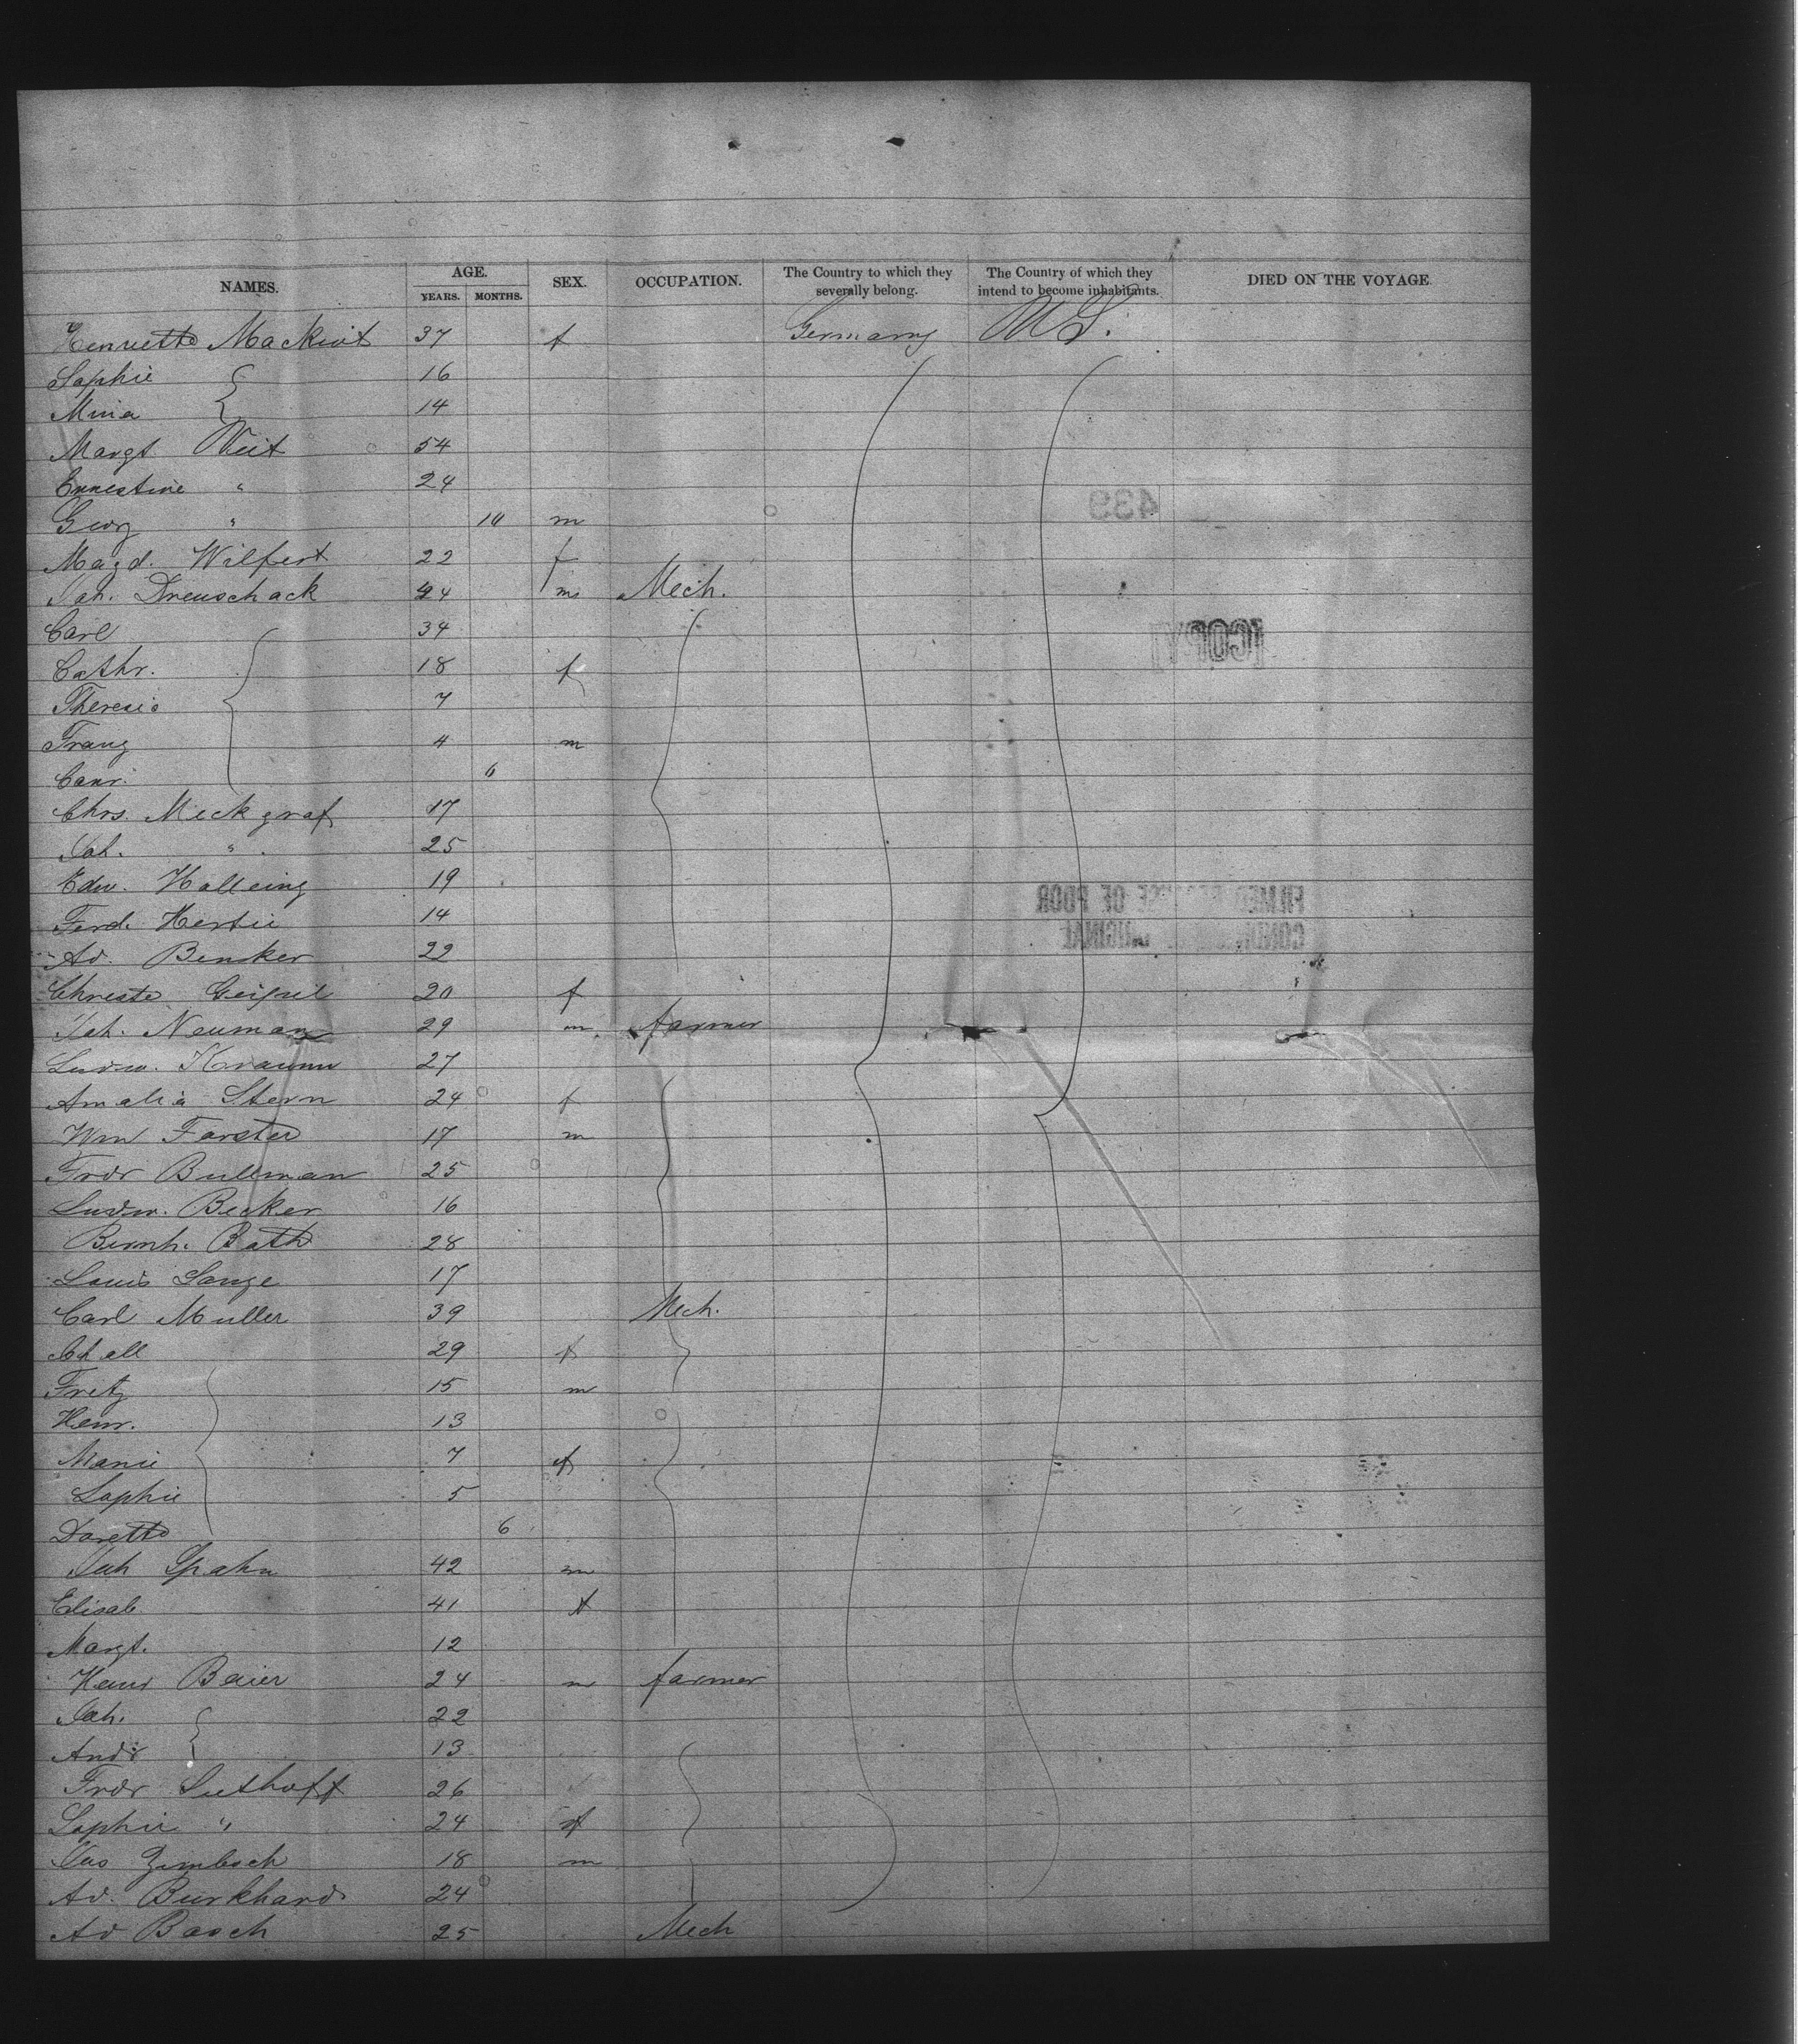 NAMES. AGE. YEARS. MONTHS. SEX. OCCUPATION. The Country to which they severally belong. The Country of which they intend to become inhabitants. DIED ON THE VOYAGE
Henriette Mackint 37 f Germany U.S.
Sophie 16
Mina 14
Margt. Veit 54
Ernestine " 24
Georg " 10 m
Magd. Wilfert 22 f
Joh. Dreuschack 24 m Mech.
Carl 34
Cathr. 18 f
Theresia 7
Franz 4 m
6
Chrs. Meckgraf 17
Joh. " 25
Edw. Halleing 19
439
COPY
Ferd. Hertie 14
FILMED BECAUSE OF POOR
CONDITION OF ORIGINAL
Ad. Bencker 22
Christe 20 f
Joh. Neuman 29 m farmer
Ludw. 27
Amalia Stern 24 f
Wm Farster 17 m
Fredr Bullman 25
Ludw. Becker 16
Bernh. Bath 28
Louis Lange 17
Carl Muller 39 Mech.
29 f
Fritz 15 m
Henr. 13
Marie 7 f
Sophie 5
Dorette 6
Joh Spahn 42 m
Elisab. 41 f
Margt. 12
Henr Baier 24 m farmer
Joh. 22
Andr 13
Fredr Suthoff 26
Sophie " 24 f
18 m
Ad. Burkhard 24
Ad Basch 25 Mech